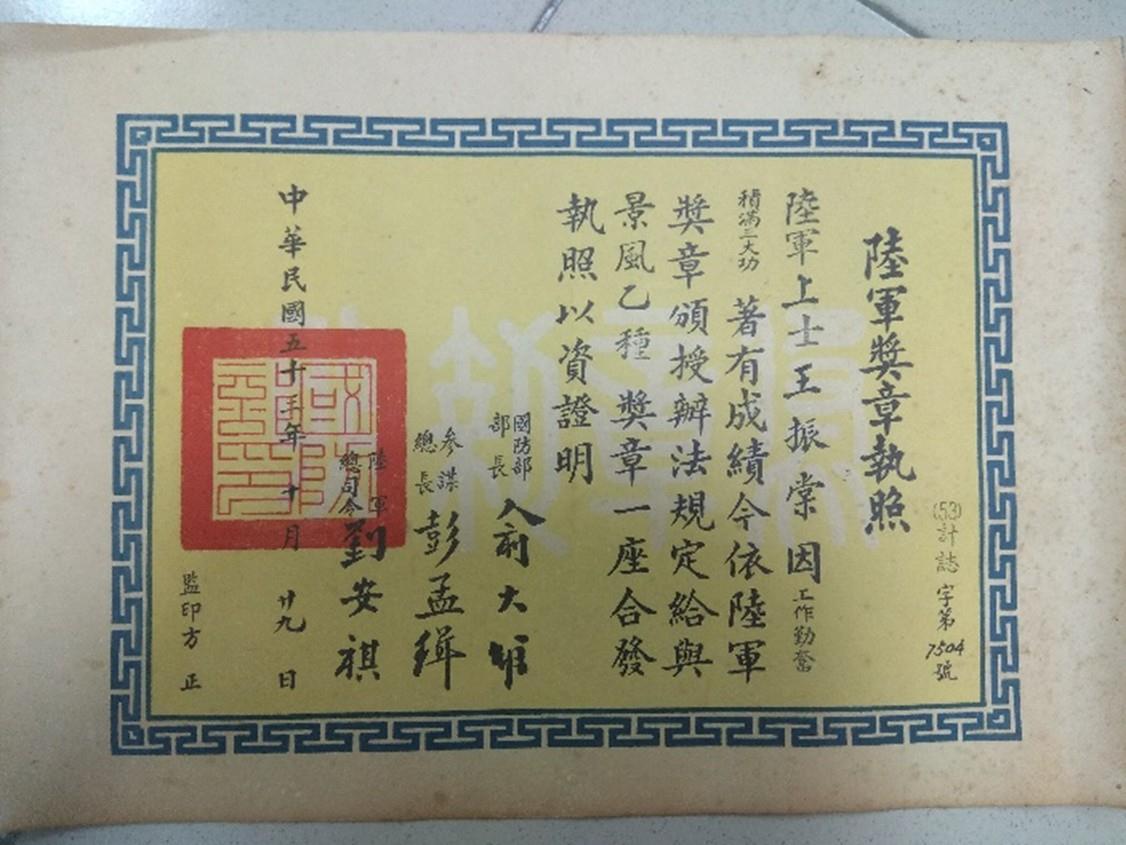 陸軍獎章執照
(53)計誌字第7504號
陸軍上士王振棠因工作勤奮
積滿三大功著有成績今依陸軍
獎章頒授辦法規定給與
景風乙種獎章一座合發
執照以資證明
國防部部長俞大維
參謀總長彭孟緝
陸軍總司令劉安祺
中華民國五十三年十月廿九日
監印方正